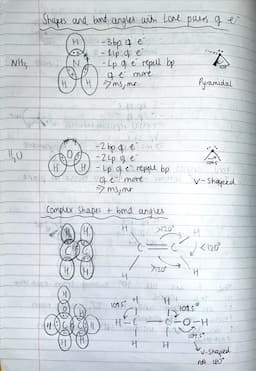 Shapes and bond angles with Lone pairs of e⁻
NH₃
H
N
H H
- 3bp of e⁻
- 1lp of e⁻
- Lp of e⁻ repell bp
of e⁻ more
Pyramidal
H₂O
O
H H
- 2bp of e⁻
- 2Lp of e⁻
- Lp of e⁻ repell bp
of e⁻ more
104.5
V-shaped
Complex shapes + bond angles
H H
C C
H H
H >120° H
C = C <120°
H >120° H
H H
109.5° H H 109.5°
H C C O H
H H 104.5°
V-shaped